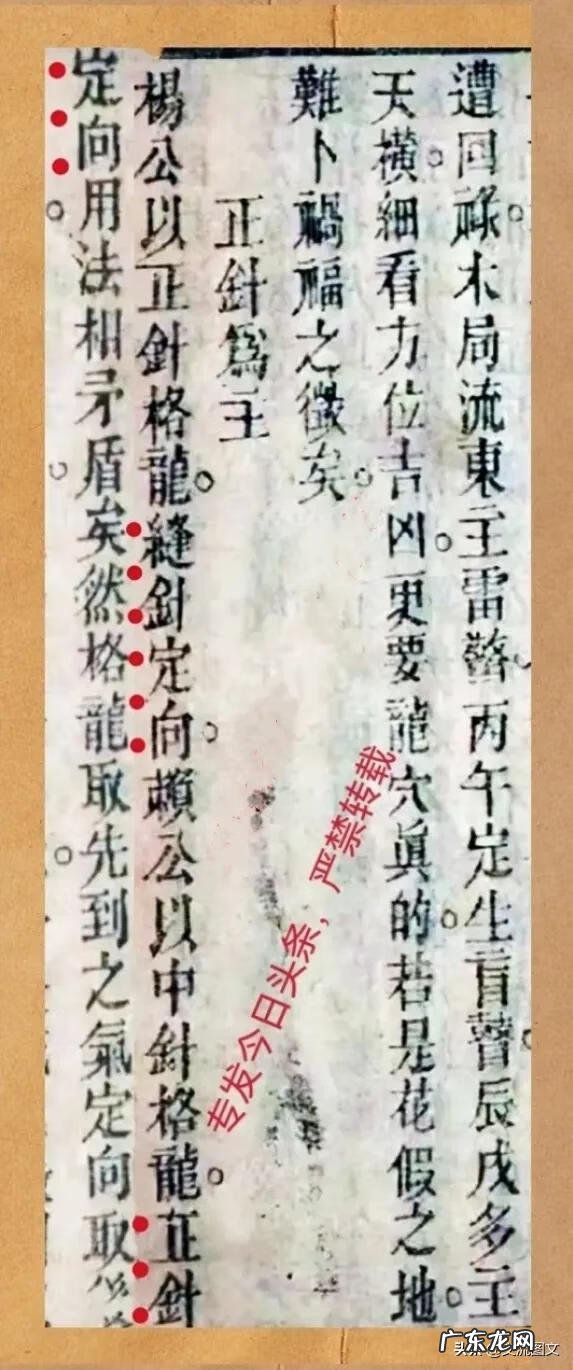 遭回祿木局流東主雷驚丙午定生盲瞽辰戌多主
天橫細看方位吉凶更要龍穴眞的若是花假之地
難卜禍福之徵矣
正針爲主
楊公以正針格龍縫針定向賴公以中針格龍正針
定向用法相矛盾矣然格龍取先到之氣定向取
专发今日头条，严禁转载
广东龙网